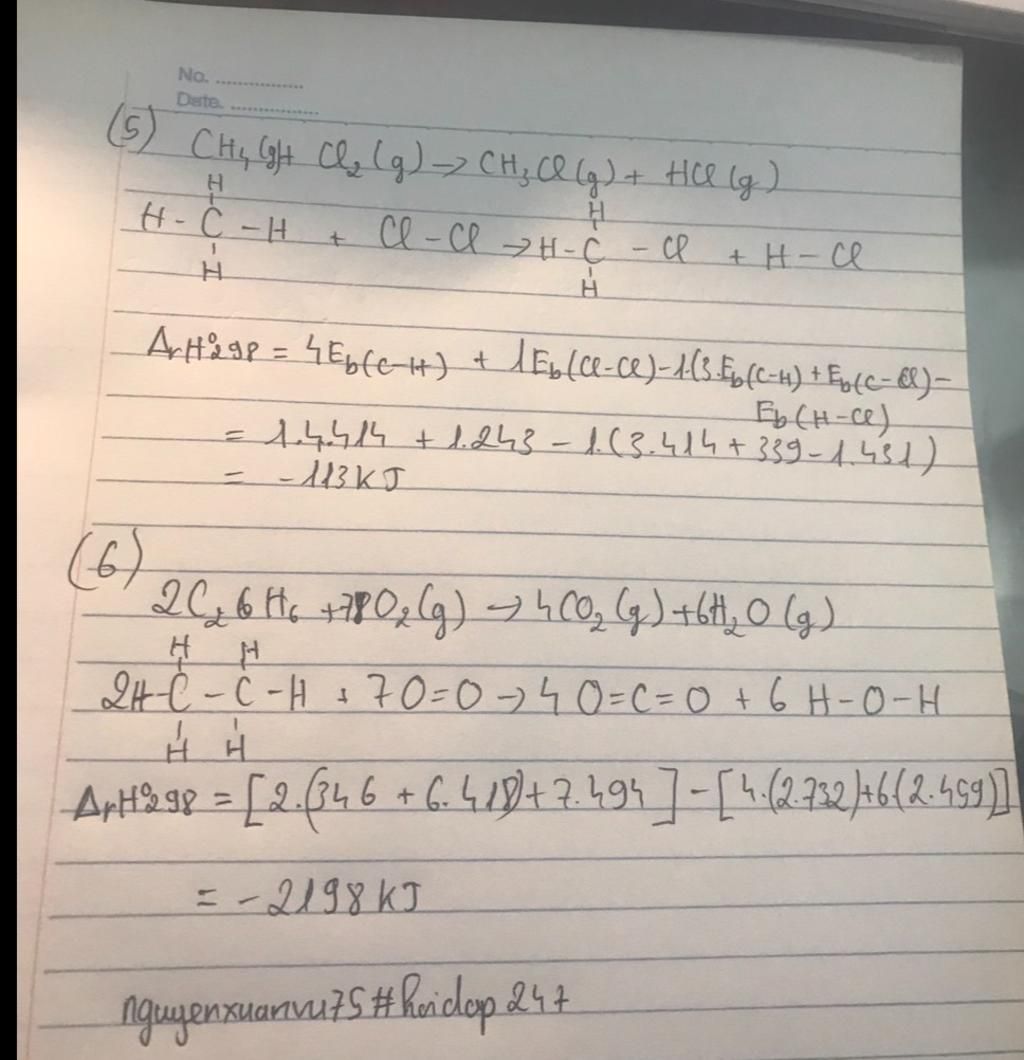 No. ..................
Date. ..................
(5) CH₄(g)+ Cl₂(g) → CH₃Cl(g) + HCl(g)
H H
H - C - H + Cl - Cl → H - C - Cl + H - Cl
H H
ΔrH°298 = 4Eb(C-H) + 1Eb(Cl-Cl) - 1.(3.Eb(C-H) + Eb(C-Cl) -
Eb(H-Cl)
= 1.4.414 + 1.243 - 1.(3.414 + 339 - 1.431)
= -113 kJ
(6)
2C₂6H₆ + 7O₂(g) → 4CO₂(g) + 6H₂O(g)
H H
2H - C - C - H + 7O=O → 4O=C=O + 6H-O-H
H H
ΔrH°298 = [2.(346 + 6.418) + 7.494] - [4.(2.732) + 6.(2.459)]
= -2198 kJ
nguyenxuanvu75#hoidap247